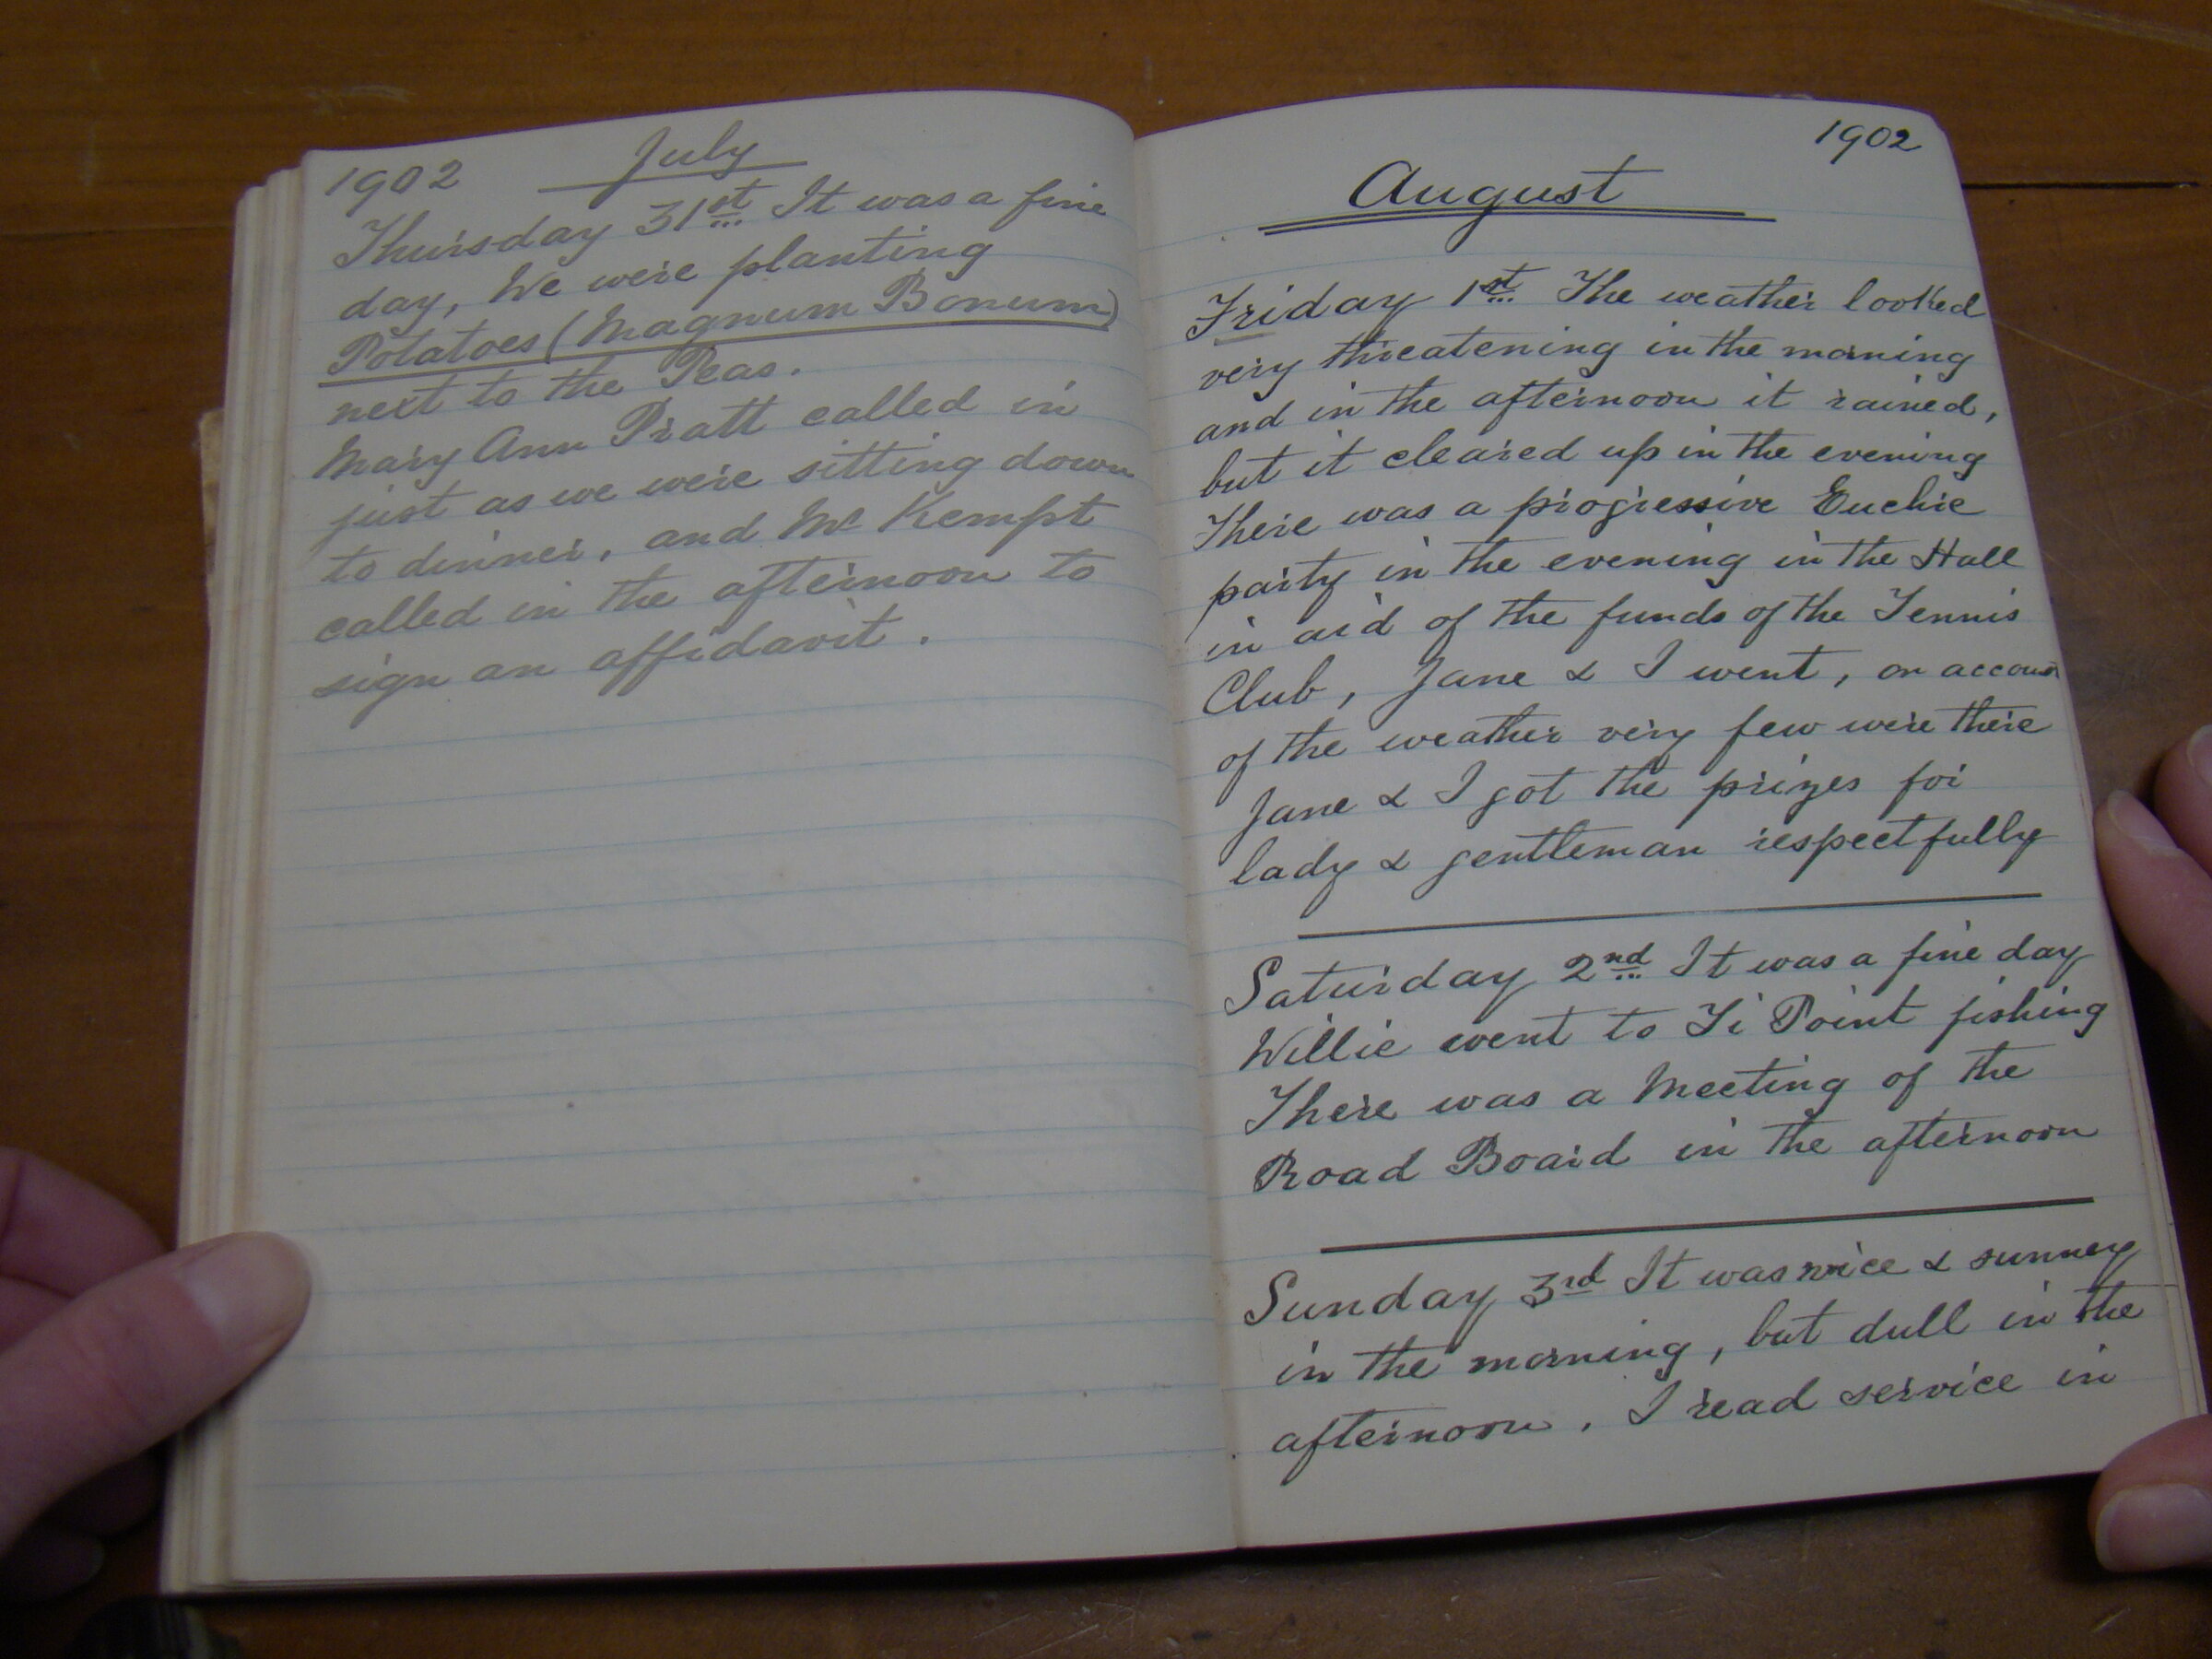 1902 July
Thursday 31st It was a fine
day, We were planting
Potatoes (Magnum Bonum)
next to the Peas.
Mary Ann Pratt called in
just as we were sitting down
to dinner, and Mr Kempt
called in the afternoon to
sign an affidavit.
1902
August
Friday 1st The weather looked
very threatening in the morning
and in the afternoon it rained,
but it cleared up in the evening
There was a progressive Euchre
party in the evening in the Hall
in aid of the funds of the Tennis
Club, Jane & I went, on account
of the weather very few were there
Jane & I got the prizes for
lady & gentleman respectfully
Saturday 2nd It was a fine day
Willie went to Ti Point fishing
There was a Meeting of the
Road Board in the afternoon
Sunday 3rd It was nice & sunney
in the morning, but dull in the
afternoon. I read service in